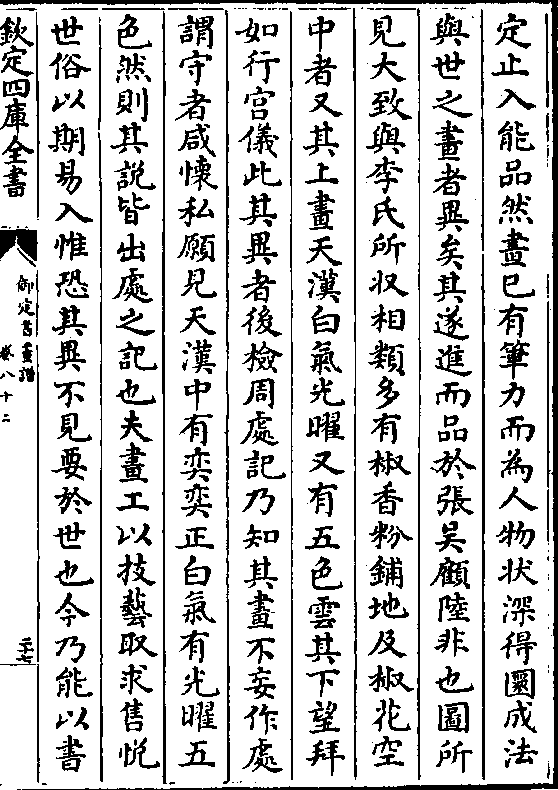 定止入能品然畫已有筆力而為人物狀深得圜成法
與世之畫者異矣其遂進而品於張吳顧陸非也圖所
見大致與李氏所収相類多有椒香粉鋪地及椒花空
中者又其上畫天漢白氣光曜又有五色雲其下望拜
如行宫儀此其異者後檢周處記乃知其畫不妄作處
謂守者咸懷私願見天漢中有奕奕正白氣有光曜五
色然則其説皆出處之記也夫畫工以技藝取求售悦
世俗以期易入惟恐其異不見要於世也今乃能以書
欽定四庫全書
御定書畫譜
卷八十二
二十七